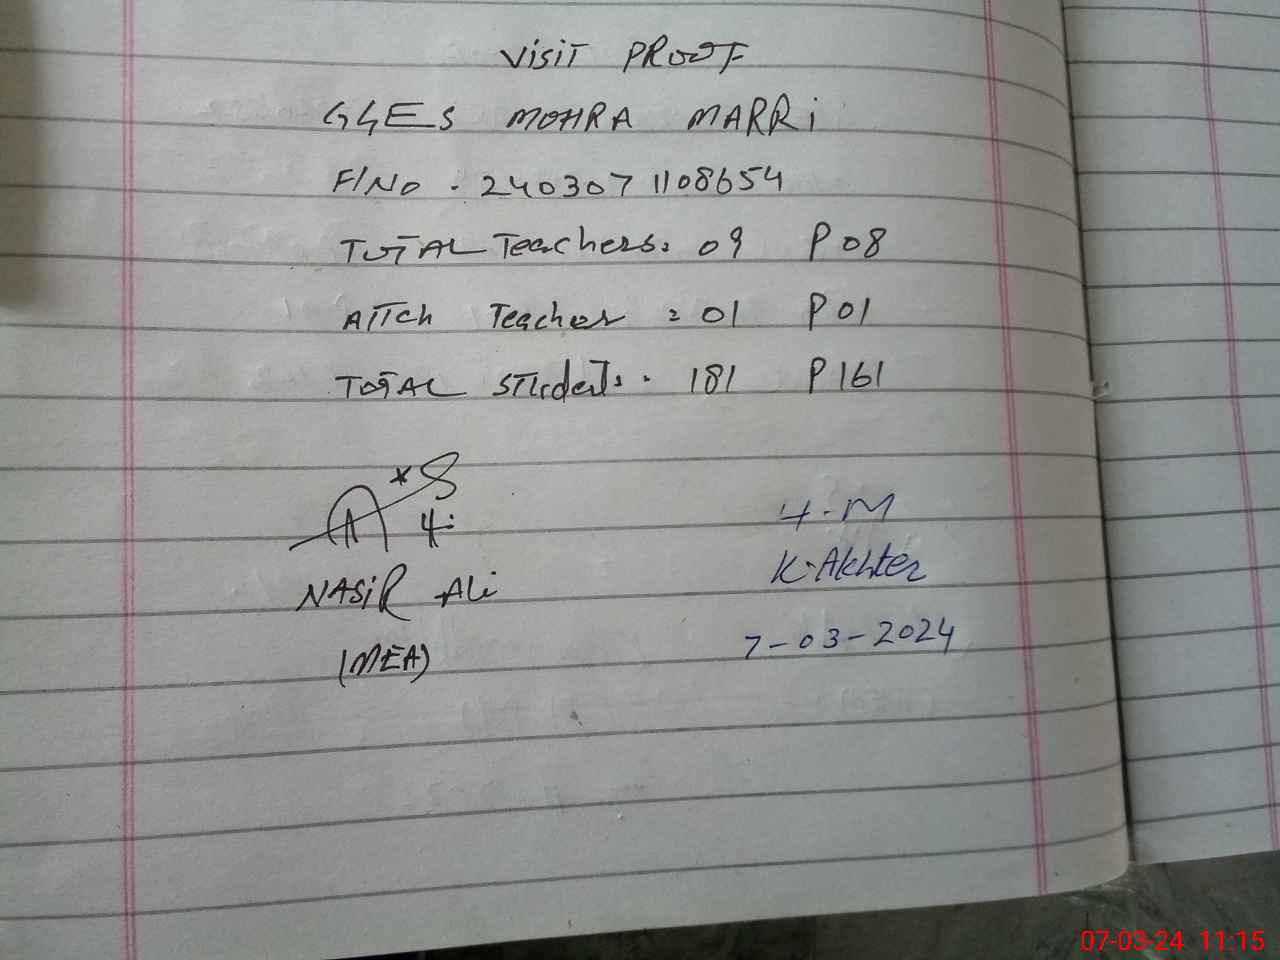 Visit PROOF
GGES MOHRA MARRi
F/No . 2403071108654
TOTAL Teachers. 09 P 08
ATTCh Teacher = 01 P 01
TOTAL Students. 181 P 161
NASiR Ali
(MEA)
H.M
K.Akhter
7-03-2024
07-03-24 11:15